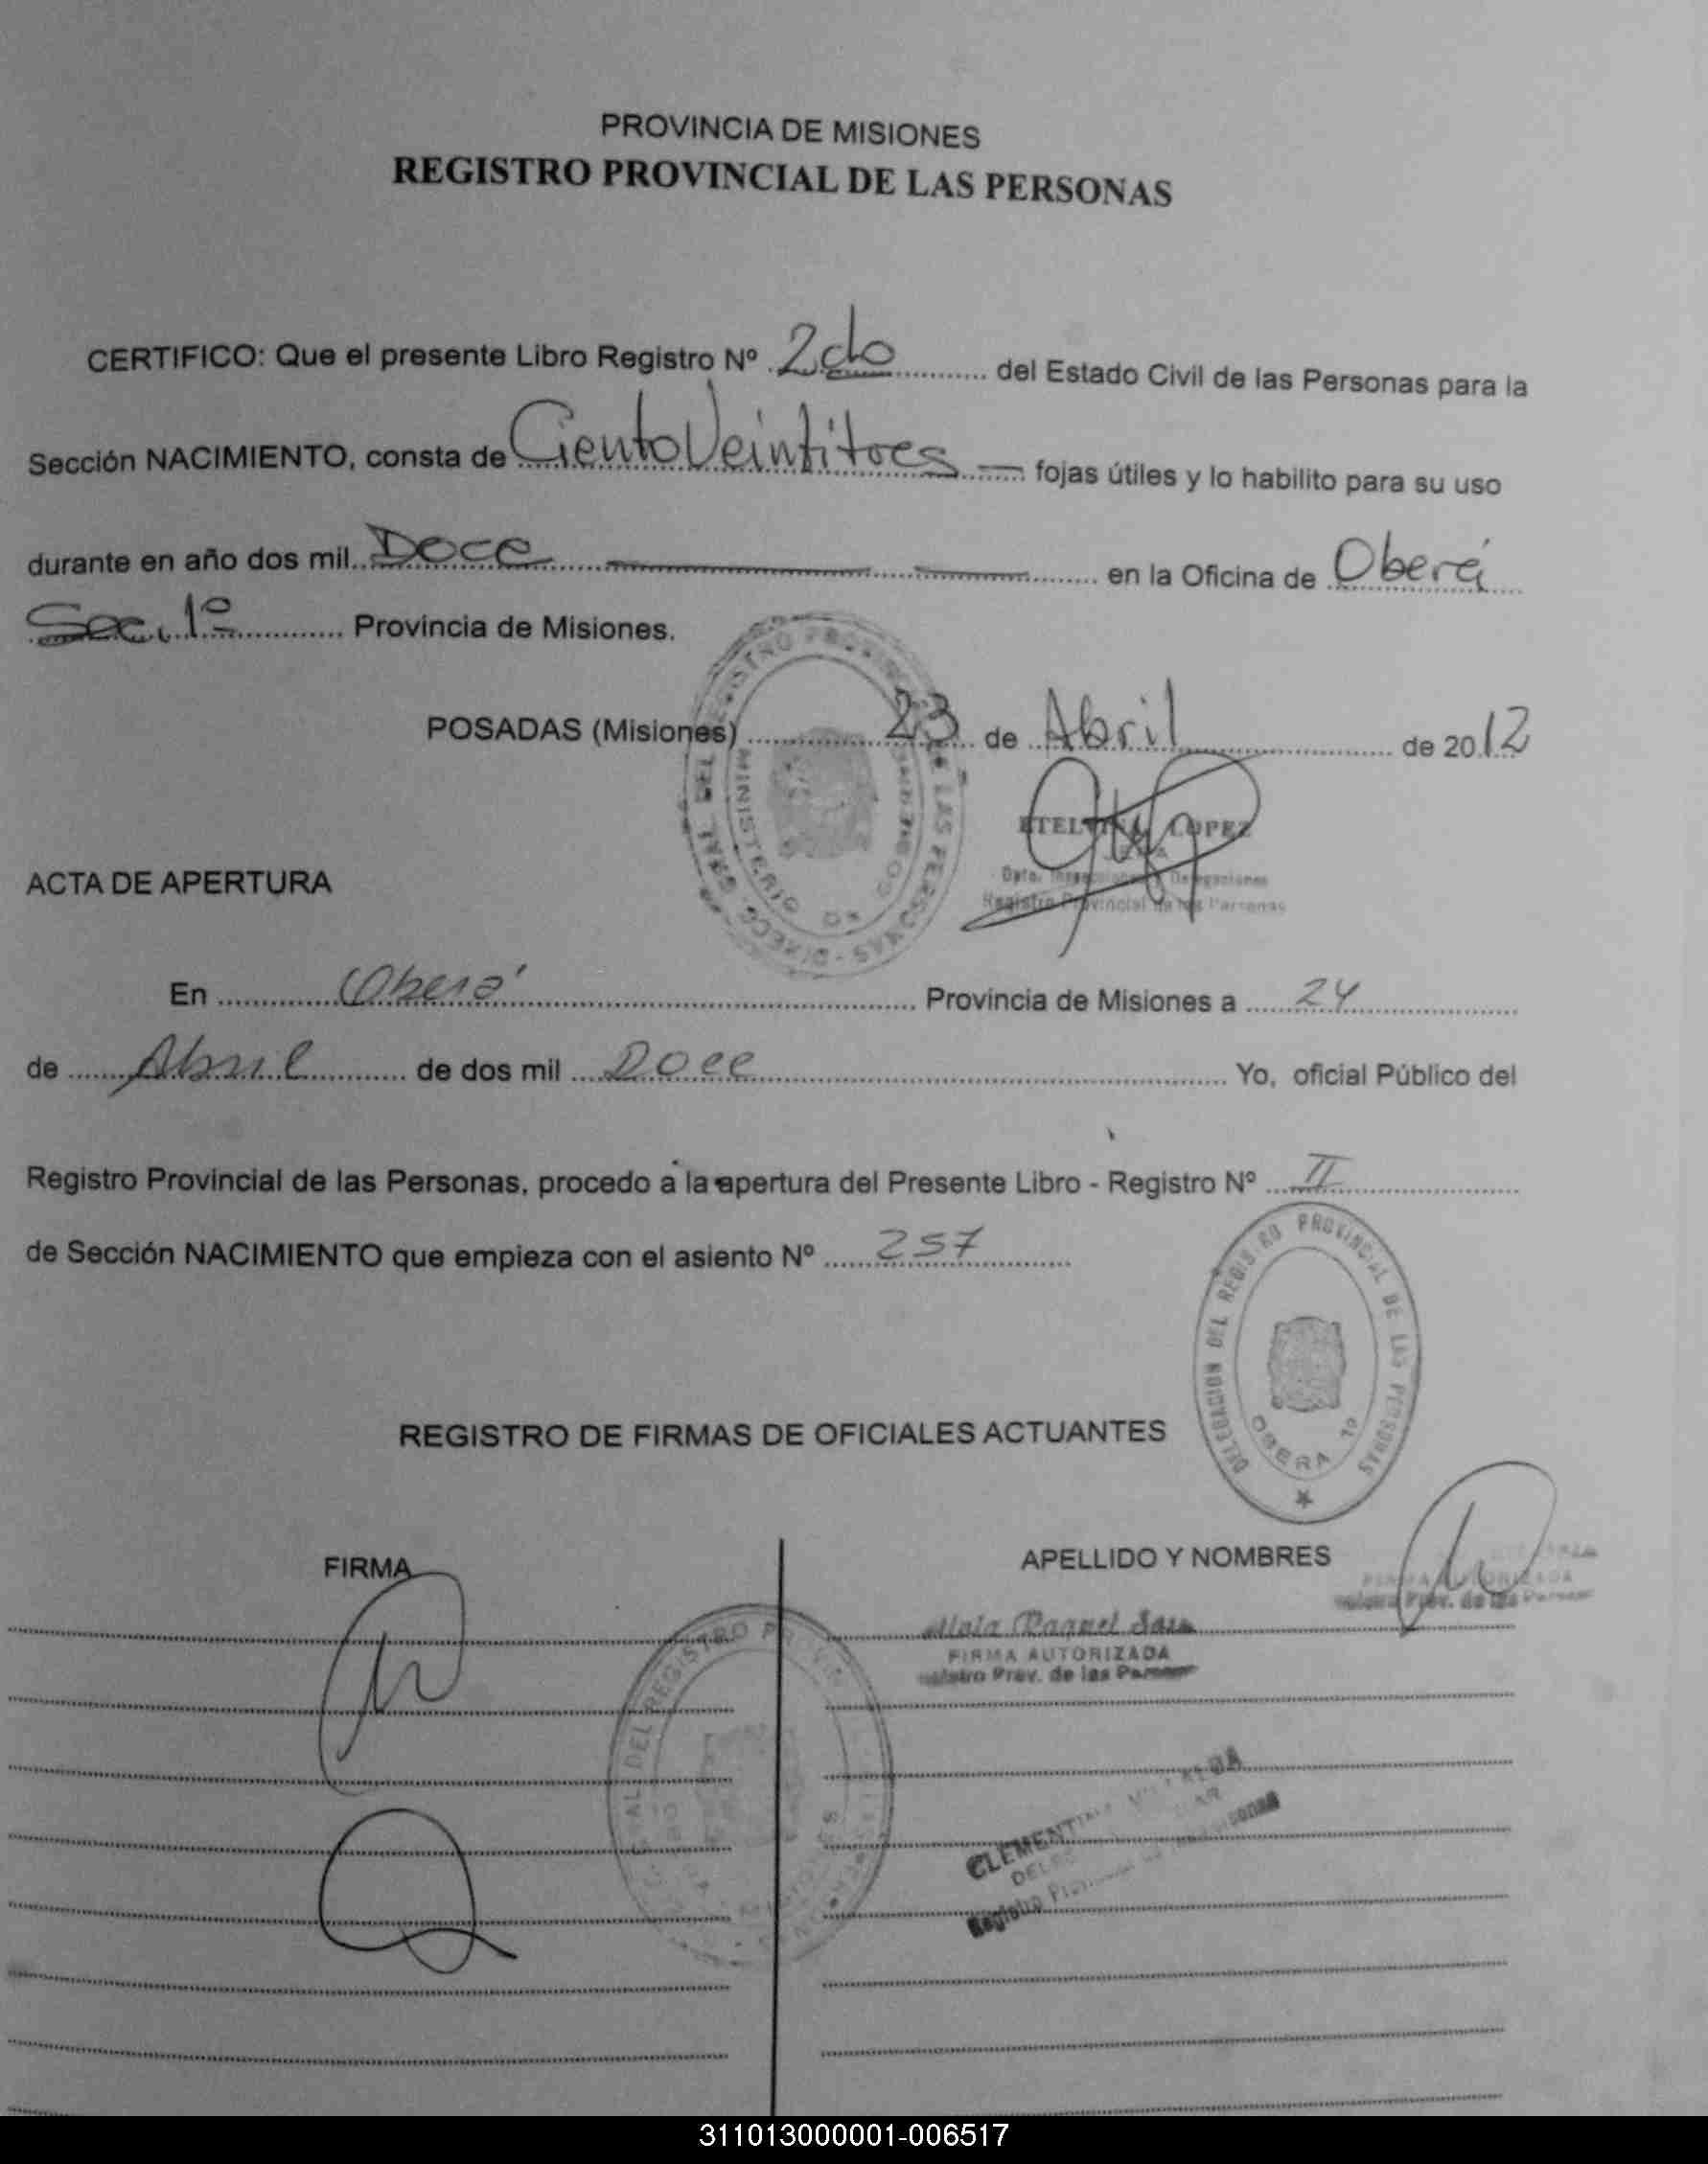 PROVINCIA DE MISIONES
REGISTRO PROVINCIAL DE LAS PERSONAS
CERTIFICO: Que el presente Libro Registro Nº 2do del Estado Civil de las Personas para la
Sección NACIMIENTO, consta de Ciento Veintitres fojas útiles y lo habilito para su uso
durante en año dos mil Doce en la Oficina de Oberá
Sec. 1º Provincia de Misiones.
POSADAS (Misiones) 23 de Abril de 2012
LOPEZ
Registro Provincial de las Personas
ACTA DE APERTURA
En Oberá Provincia de Misiones a 24
de Abril de dos mil Doce Yo, oficial Público del
Registro Provincial de las Personas, procedo a la apertura del Presente Libro - Registro Nº II
de Sección NACIMIENTO que empieza con el asiento Nº 257
DELEGACION DEL REGISTRO PROVINCIAL DE LAS PERSONAS
OBERA 1º
REGISTRO DE FIRMAS DE OFICIALES ACTUANTES
FIRMA
APELLIDO Y NOMBRES
FIRMA AUTORIZADA
Prov. de las
Raquel
FIRMA AUTORIZADA
Prov. de las
DEL REGISTRO
Registro
311013000001-006517